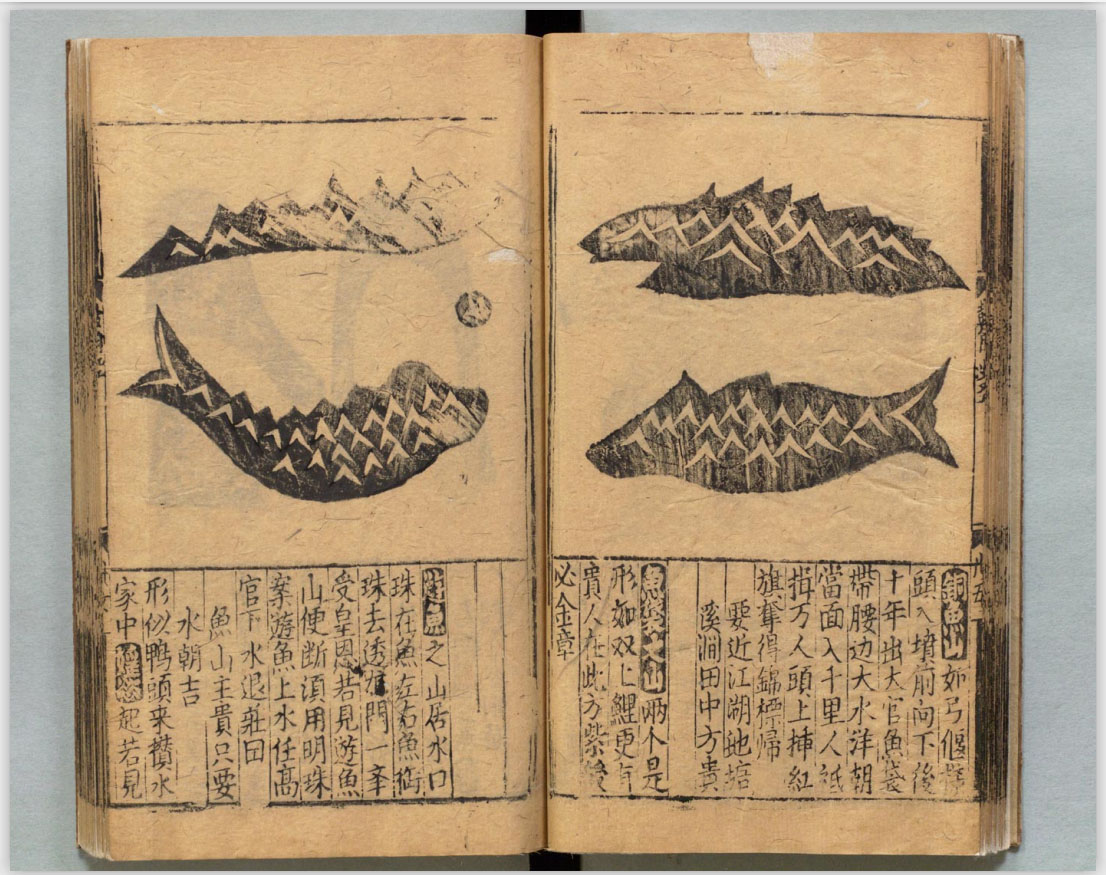 魚山如弓偃
頭入墳前向下後
十年出大官魚袋
帶腰边大水洋朝
當面入千里人祗
揖万人頭上揷紅
旗奪得錦標歸
要近江湖池塘
溪澗田中方貴
魚袋山兩个是
形如双上鯉更有
貴人在此方紫綬
必金章
遊魚之山居水口
珠在魚左右魚衘
珠去透門一
受皇恩若見遊魚
山便断須用明珠
案遊魚上水任髙
官下水退莊田
魚山主貴只要
水朝吉
形似鴨頭来攅水
家中起若見